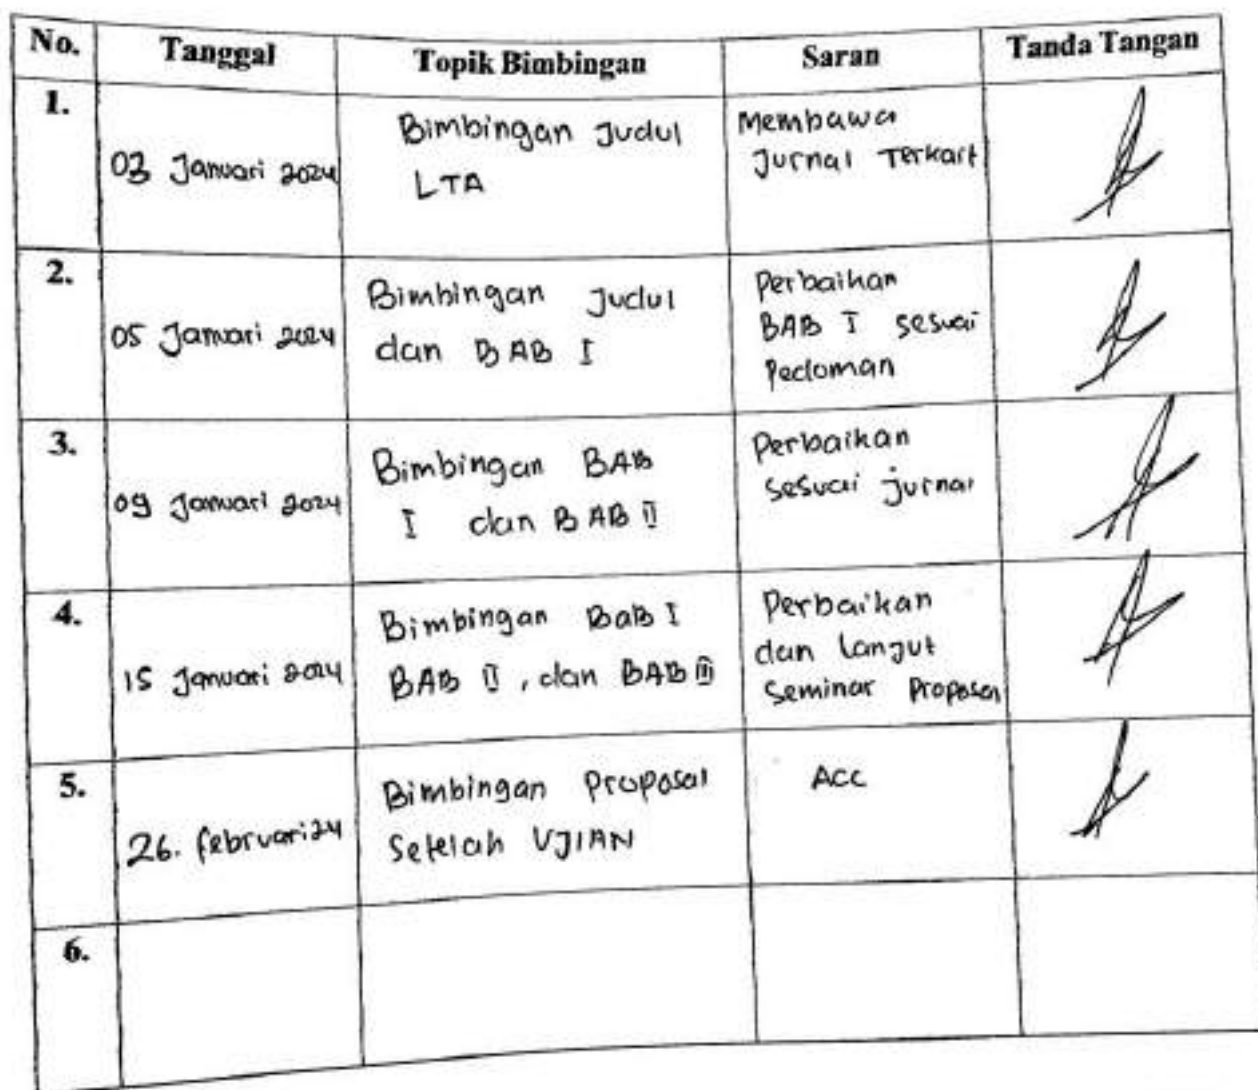 No. Tanggal Topik Bimbingan Saran Tanda Tangan
1.
03 Januari 2024
Bimbingan Judul
LTA
Membawa
Jurnal Terkait
2.
05 Januari 2024
Bimbingan Judul
dan BAB I
Perbaikan
BAB I sesuai
Pedoman
3.
09 Januari 2024
Bimbingan BAB
I dan BAB II
Perbaikan
sesuai jurnal
4.
15 Januari 2024
Bimbingan BaB I
BAB II, dan BAB III
Perbaikan
dan Lanjut
Seminar Proposal
5.
26. februari 24
Bimbingan Proposal
Setelah UJIAN
ACC
6.